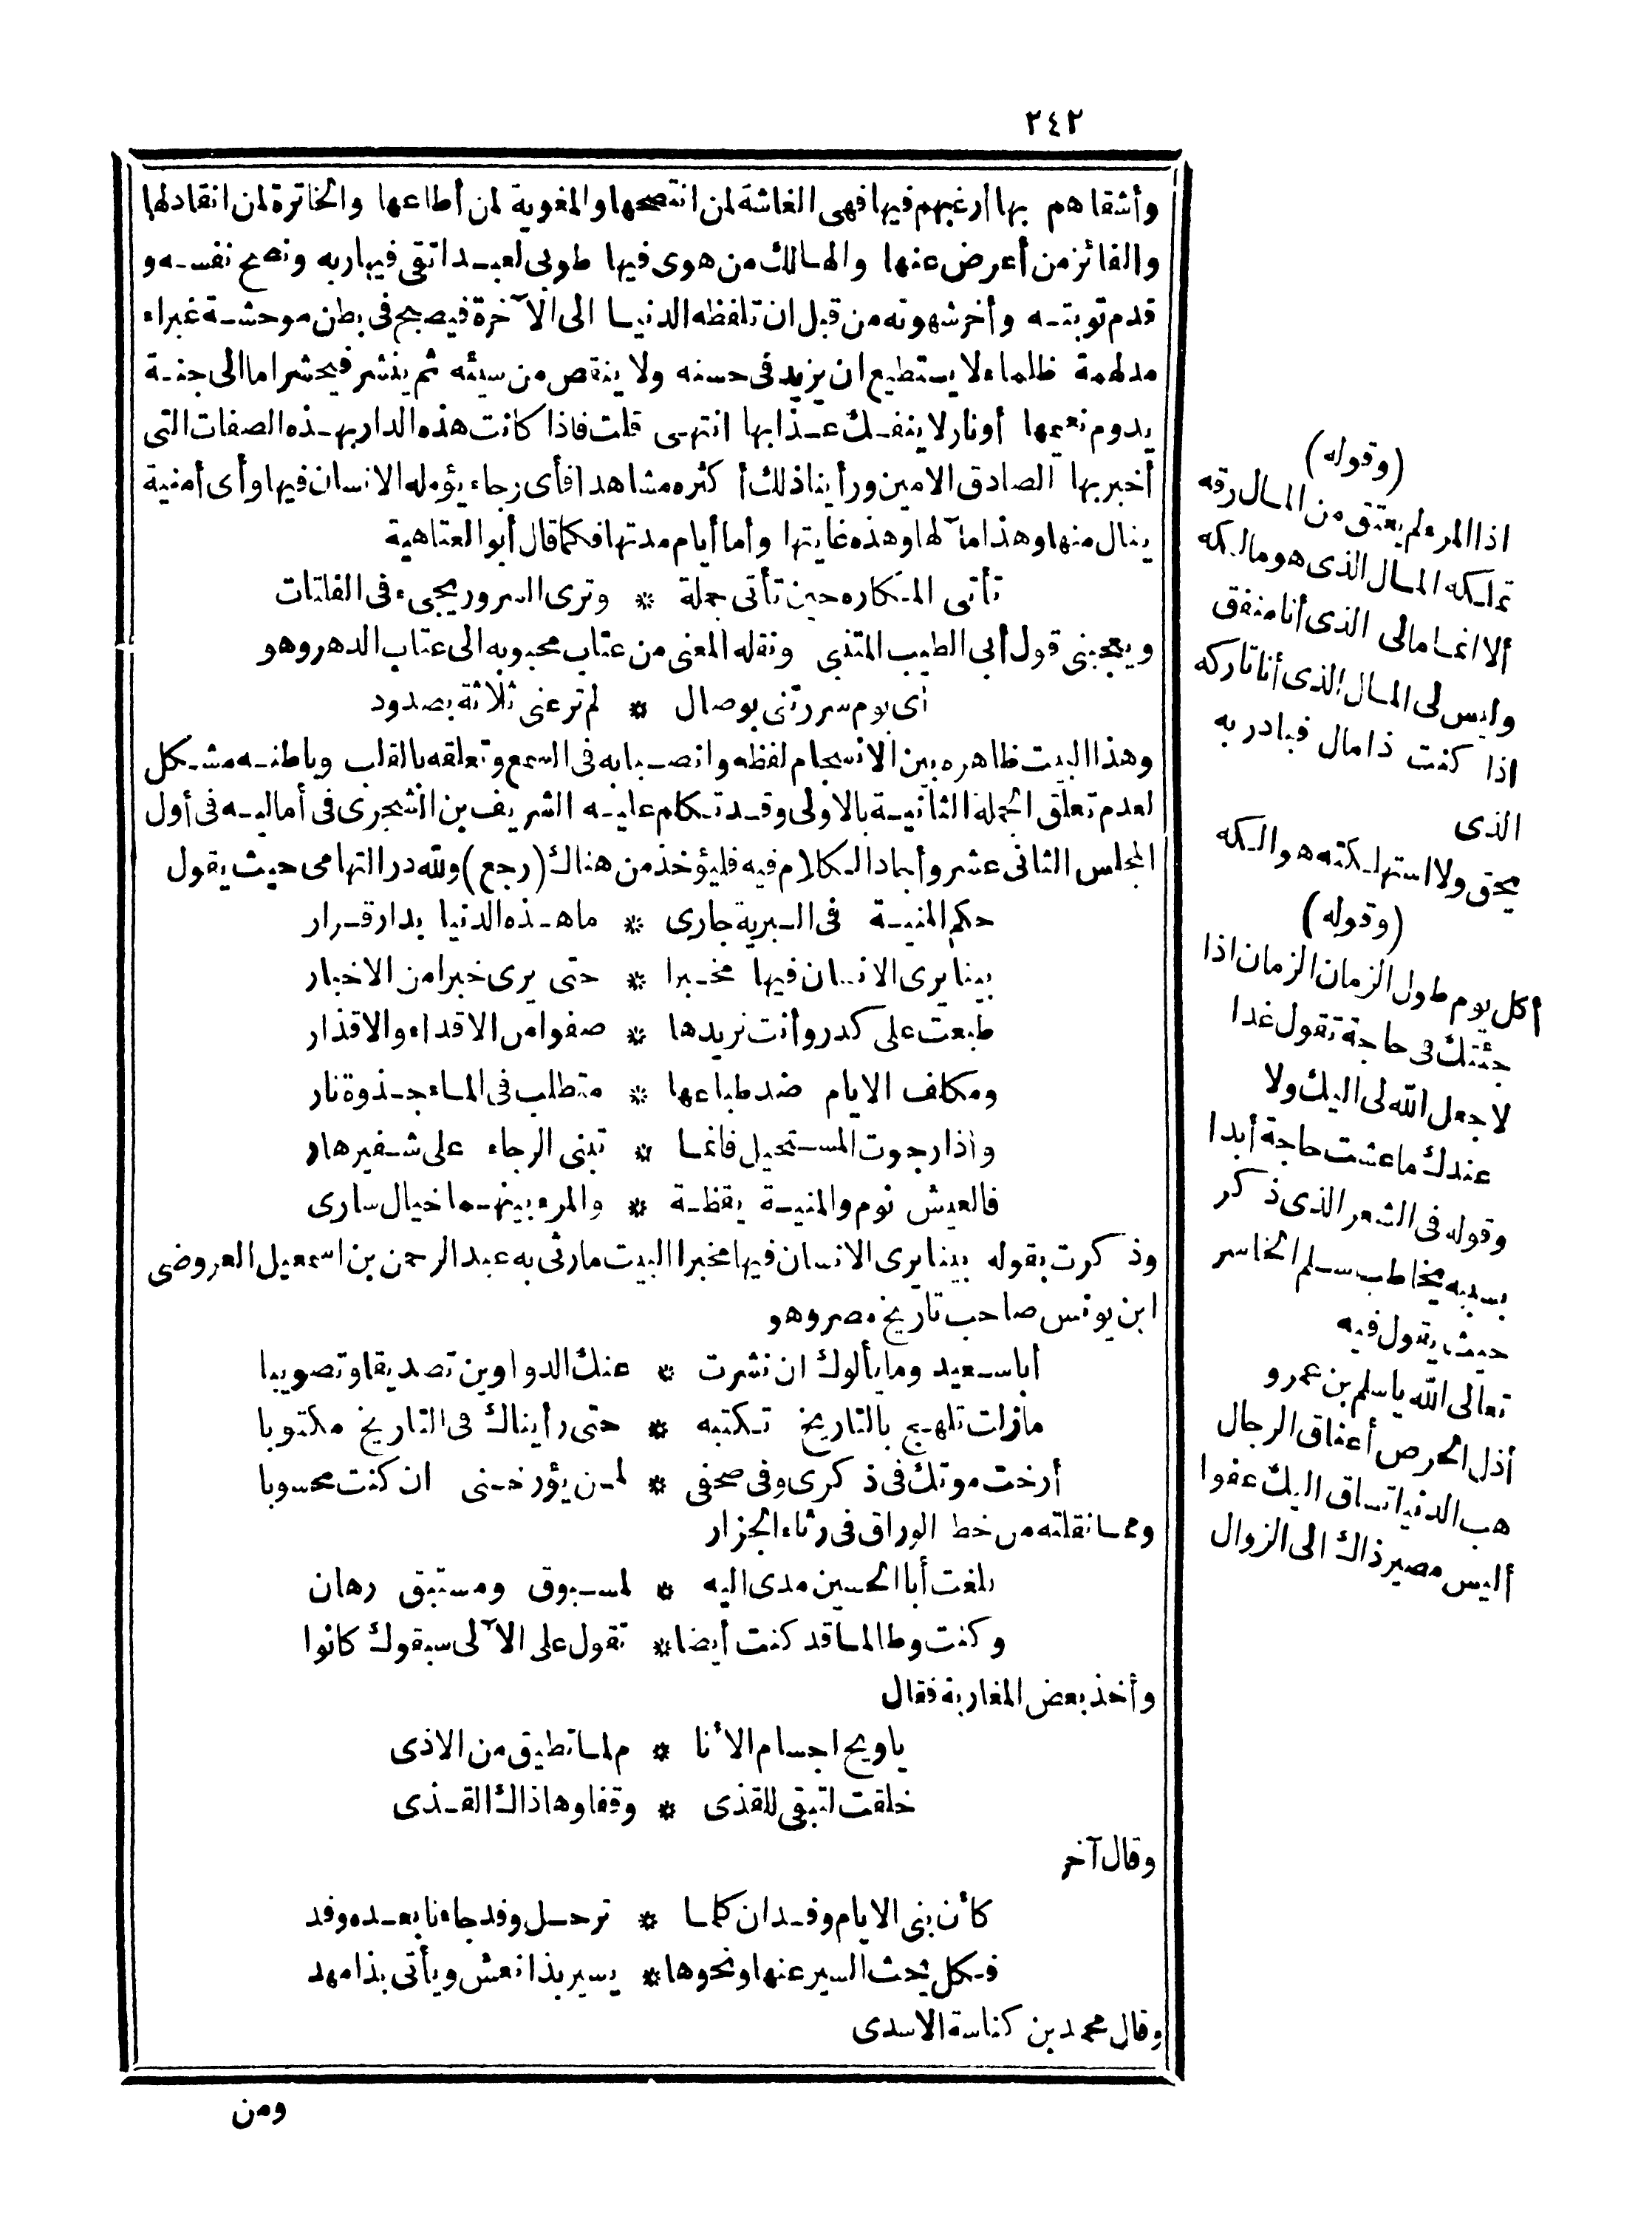 ٢٤٢
وأشقاهم بها أرغبهم فيها فهى الغاشة لمن انتصحها والمغوية لمن أطاعها والخاترة لمن انقادلها
والفائز من أعرض عنها والهالك من هوى فيها طوبى لعبد اتقى فيها ربه ونصح نفسه و
قدم توبته وأخر شهوته من قبل ان تلفظه الدنيا الى الآخرة فيصبح فى بطن موحشة غبراء
مدلهمة ظلماء لا يستطيع ان يزيد فى حسنه ولا ينقص من سيئه ثم ينشر فيحشر اما الى جنة
يدوم نعيمها أو نار لا ينفك عذابها انتهى قلت فاذا كانت هذه الدار بهذه الصفات التى
أخبر بها الصادق الامين ورأينا ذلك أكثره مشاهدا فأى رجاء يؤمله الانسان فيها وأى أمنية
ينال منها وهذا مآلها وهذه غايتها وأما أيام مدتها فكما قال أبو العتاهية
تأتى المكاره حين تأتى جملة * وترى السرور يجىء فى الفلتات
ويعجبنى قول أبى الطيب المتنبى ونقله المعنى من عتاب محبوبه الى عتاب الدهر وهو
أى يوم سررتنى بوصال * لم ترعنى ثلاثة بصدود
وهذا البيت ظاهره بين الانسجام لفظه وانصبابه فى السمع وتعلقه بالقلب وباطنه مشكل
لعدم تعلق الجملة الثانية بالاولى وقد تكلم عليه الشريف بن الشجرى فى أماليه فى أول
المجلس الثانى عشر وأجاد الكلام فيه فليؤخذ من هناك (رجع) ولله در التهامى حيث يقول
حكم المنية فى البرية جارى * ما هذه الدنيا بدار قرار
بينا يرى الانسان فيها مخبرا * حتى يرى خبرا من الاخبار
طبعت على كدر وأنت تريدها * صفوا من الاقداء والاقذار
ومكلف الايام ضد طباعها * متطلب فى الماء جذوة نار
واذا رجوت المستحيل فانما * تبنى الرجاء على شفير هار
فالعيش نوم والمنية يقظة * والمرء بينهما خيال سارى
وذكرت بقوله بينا يرى الانسان فيها مخبرا البيت ما رثى به عبد الرحمن بن اسمعيل العروضى
ابن يونس صاحب تاريخ مصر وهو
أبا سعيد وما يألوك ان نشرت * عنك الدواوين تصديقا وتصويبا
ما زلت تلهج بالتاريخ تكتبه * حتى رأيناك فى التاريخ مكتوبا
أرخت موتك فى ذكرى وفى صحفى * لمن يؤرخنى ان كنت محسوبا
ومما نقلته من خط الوراق فى رثاء الجزار
بلغت أبا الحسين مدى اليه * لمسبوق ومستبق رهان
وكنت وطالما قد كنت أيضا * تقول على الآلى سبقوك كانوا
وأخذ بعض المغاربة فقال
يا ويح اجسام الأنا * م لما تطيق من الاذى
خلقت لتبقى للقذى * وقفا وها ذاك القذى
وقال آخر
كأن بنى الايام وفدان كلما * ترحل وفد جاءنا بعده وفد
فكل يحث السير عنها ونحوها * يسير بذا نعش ويأتى بذا مهد
وقال محمد بن كناسة الاسدى
ومن
(وقوله)
اذا المرء لم يعتق من المال رقه
تملكه المال الذى هو مالكه
ألا انما مالى الذى أنا منفق
وليس لى المال الذى أنا تاركه
اذا كنت ذا مال فبادر به
الذى
يحق ولا استهلكته هوالكه
(وقوله)
أكل يوم طول الزمان الزمان اذا
جئتك فى حاجة تقول غدا
لا جعل الله لى اليك ولا
عندك ما عشت حاجة أبدا
وقوله فى الشعر الذى ذكر
بسببه يخاطب سلم الخاسر
حيث يقول فيه
تعالى الله يا سلم بن عمرو
أذل الحرص أعناق الرجال
هب الدنيا تساق اليك عفوا
أليس مصير ذاك الى الزوال